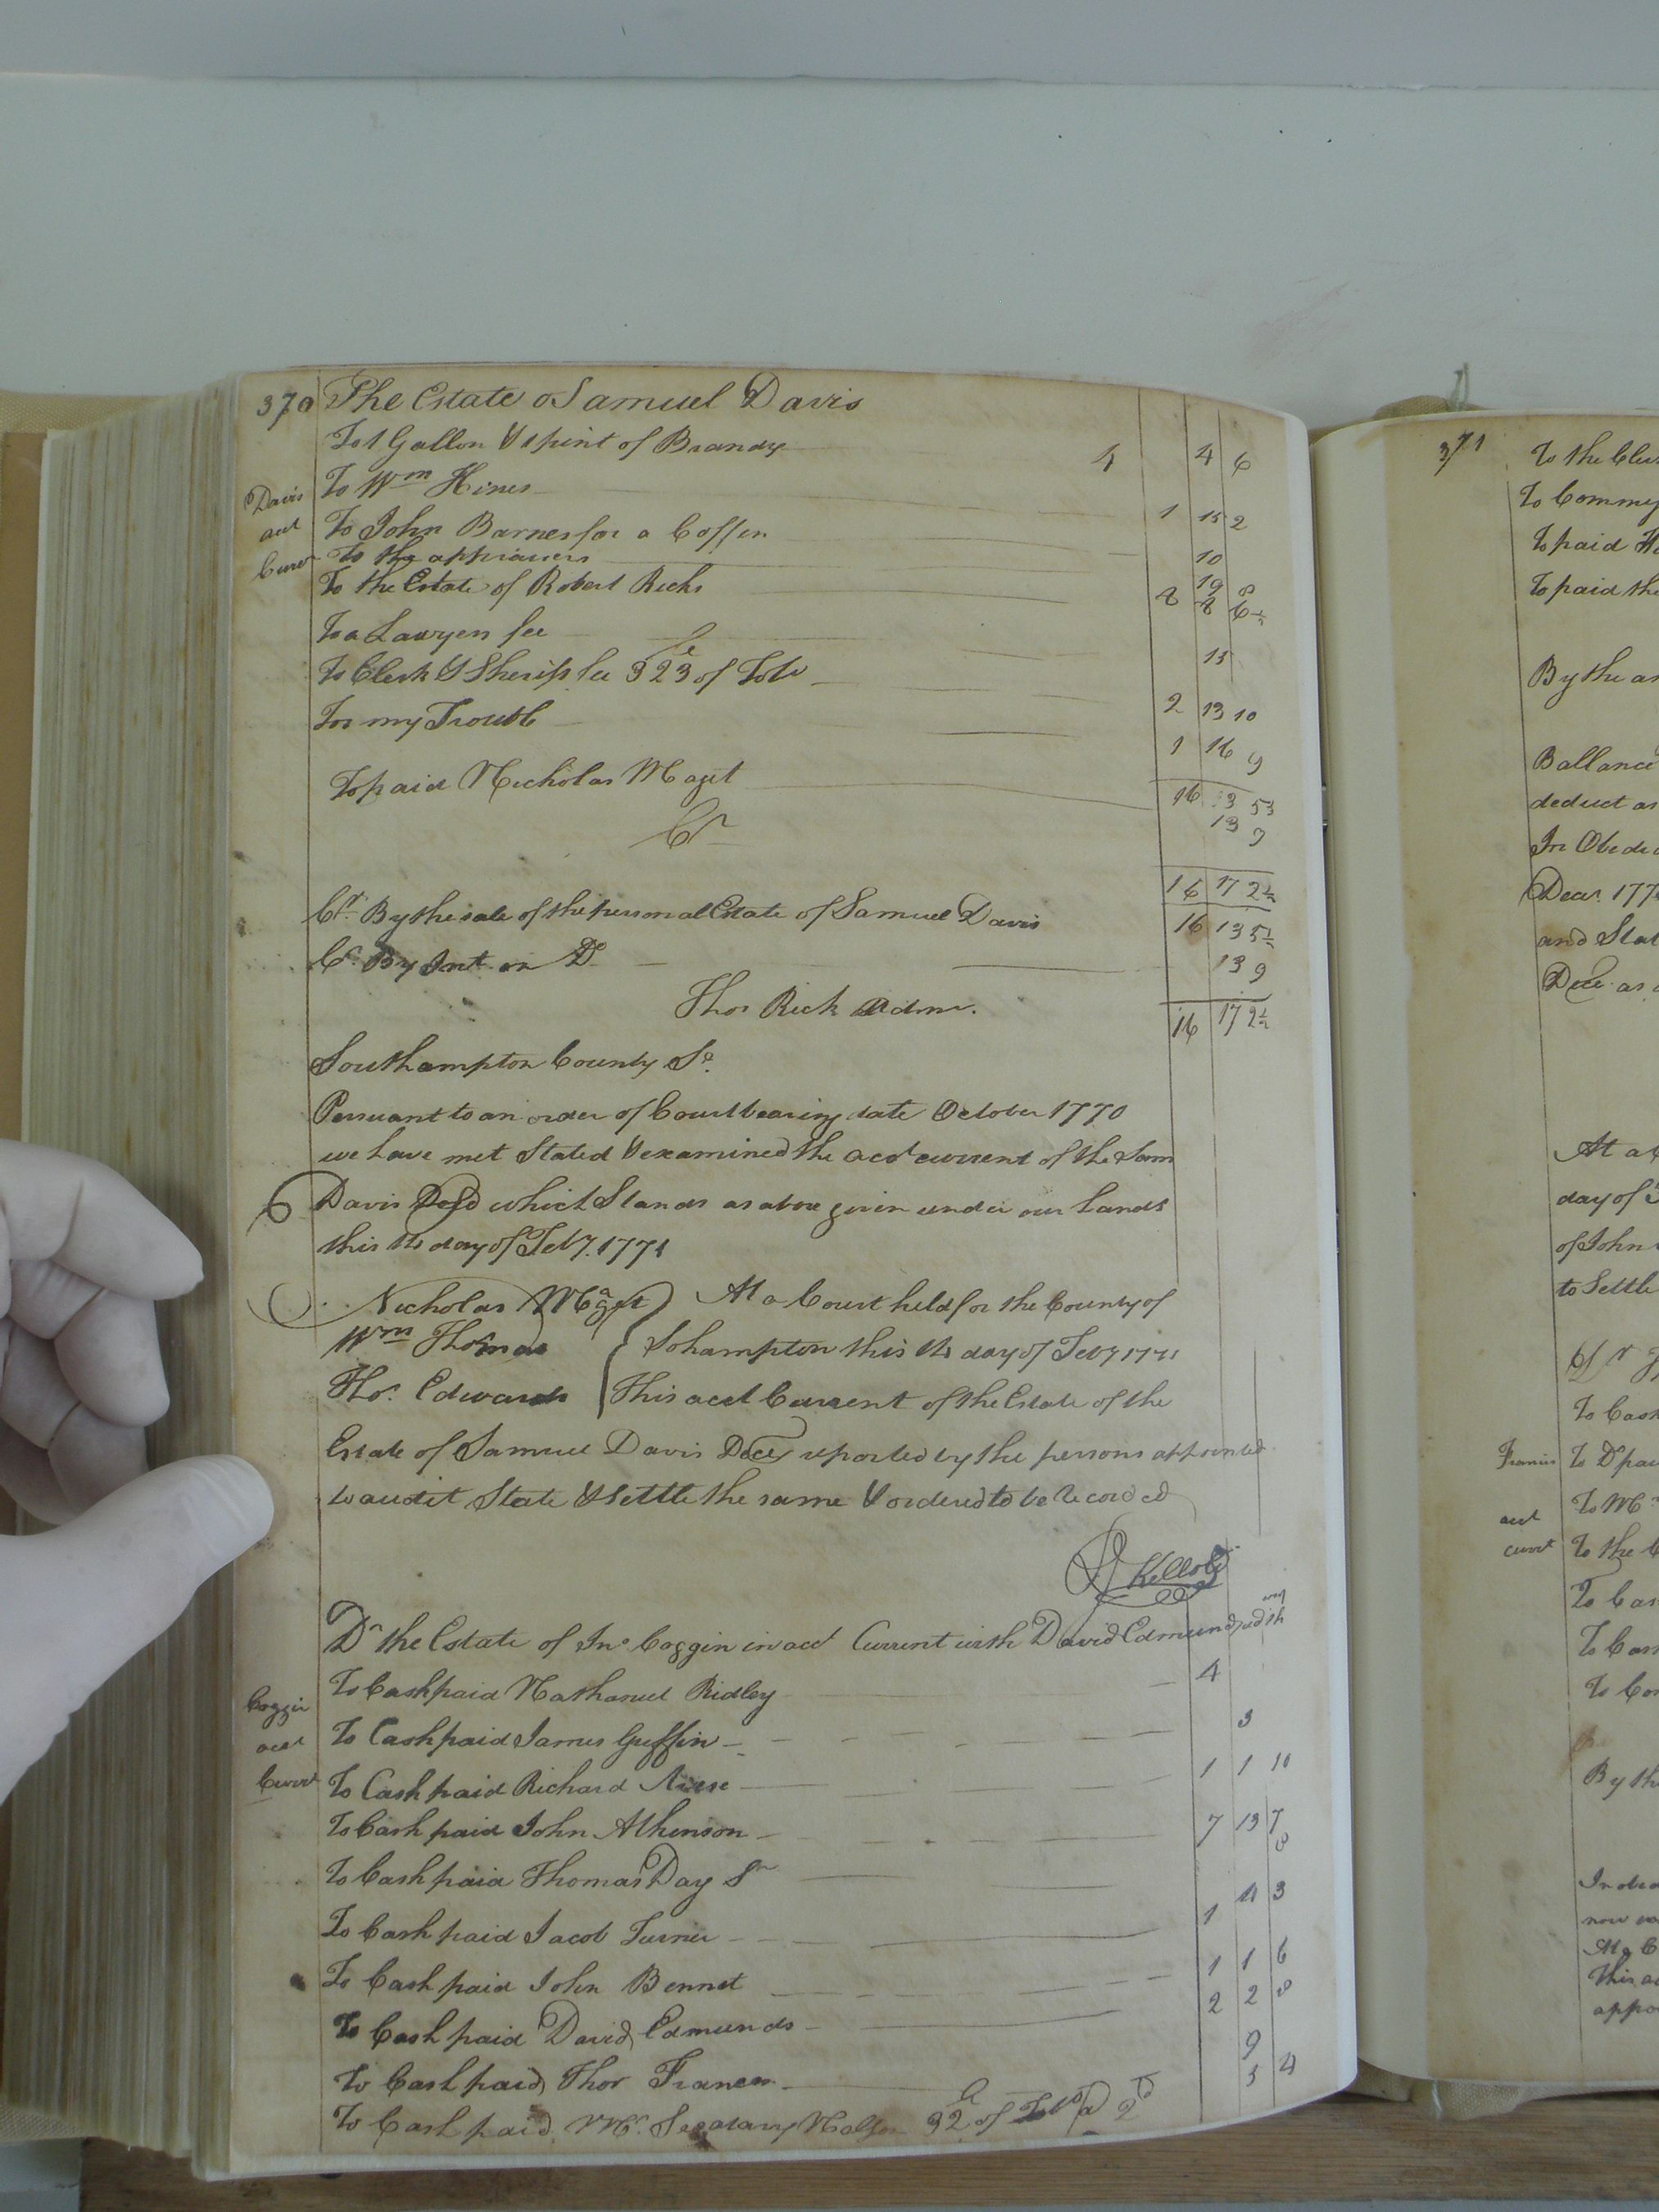 370 The Estate of Samuel Davis
To 1 Gallon & 1 pint of Brandy 4 4 6
Davis acct Curr
To Wm Hines 1 15 2
To John Barnes for a Coffin 10
To the appraisers
To the Estate of Robert Ricks 8 8 6½
To a Lawyers fee 15
To Clerk & Sheriffs fee 323 of Tobo 2 13 10
For my Trouble 1 16 9
16 3 5½
To paid Nicholas Maget 13 9
Cr
16 17 2½
Cr. By the sale of the personal Estate of Samuel Davis 16 13 5½
Cr. By Int. on Do 13 9
Thos Rick Admr. 16 17 2½
Southampton County Sc.
Persuant to an order of Court bearing date October 1770
we have met Stated & examined the acct current of the Sam
Davis Decd which Stands as above given under our hands
this day of Feby. 1771
Nicholas Maget } At a Court held for the County of
Wm Thomas { Sohampton this day of Feby 1771
Thos. Edwards { This acct Current of the Estate of the
Estate of Samuel Davis Decd reported by the persons appointed
to audit State & Settle the same & ordered to be Recorded
Dr the Estate of Jno Coggin in acct Current with David Edmunds
Coggin acct Currt
To Cash paid Nathaniel Ridley 4
To Cash paid James Griffin 3
To Cash paid Richard 1 1 10
To Cash paid John Atkenson 7 13 7
To Cash paid Thomas Day Sr 8
To Cash paid Jacob Turner 1 11 3
To Cash paid John Bennet 1 1 6
To Cash paid David Edmunds 2 2 8
To Cash paid Thos Francis 9
To Cash paid Mr. Secatary Nelson 32 of Tobo @ 2d 5 4
371 To the Cler
To Commy
To paid
To paid the
By the
Ballance
deduct
In Obed
Decr. 177
and Stat
Dece. as
At a C
day of
of John
to Settle
Francis acct currt
To Cash
To Do pai
To Mr
To the
To Cas
To Cas
To Co
By th
now
At a C
This a
appo